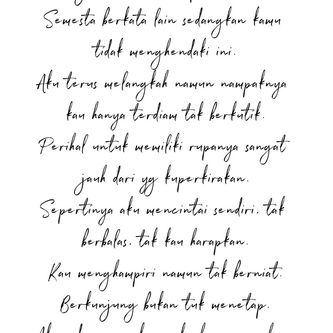 Semesta berkata lain sedangkan kamu
tidak menghendaki ini.
Aku terus melangkah namun nampaknya
kau hanya terdiam tak berkutik.
Perihal untuk memiliki rupanya sangat
jauh dari yg kuperkirakan.
Sepertinya aku mencintai sendiri, tak
berbalas, tak kau harapkan.
Kau menghampiri namun tak berniat.
Berkunjung bukan tuk menetap.